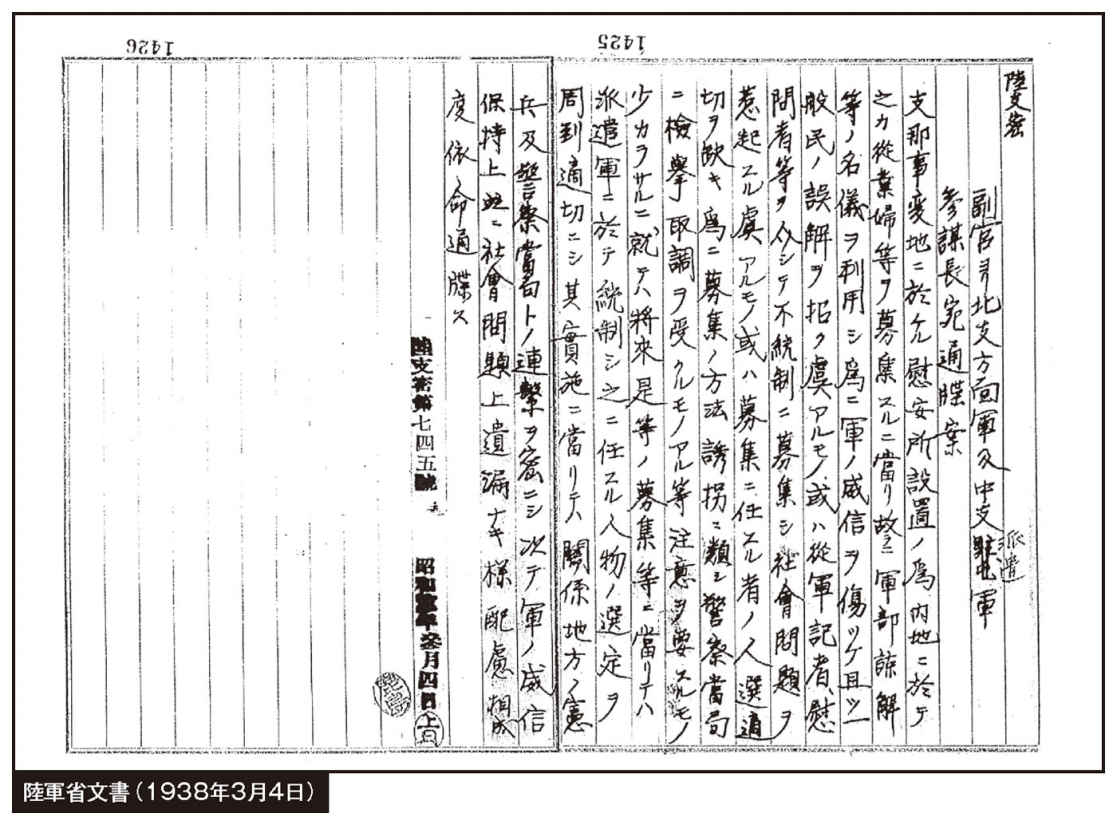 1426
1425
陸支密
副官ヨリ北支方面軍及中支派遣軍
参謀長宛通牒案
支那事変地ニ於ケル慰安所設置ノ為内地ニ於テ
之カ従業婦等ヲ募集スルニ當リ故ラニ軍部諒解
等ノ名儀ヲ利用シ為ニ軍ノ威信ヲ傷ツケ且ツ一
般民ノ誤解ヲ招ク虞アルモノ或ハ従軍記者、慰
問者等ヲ介シテ不統制ニ募集シ社會問題ヲ
惹起スル虞アルモノ或ハ募集ニ任スル者ノ人選適
切ヲ欠キ為ニ募集ノ方法誘拐ニ類シ警察當局
ニ検挙取調ヲ受クルモノアル等注意ヲ要スルモノ
少カラサルニ就テハ将来是等ノ募集等ニ當リテハ
派遣軍ニ於テ統制シ之ニ任スル人物ノ選定ヲ
周到適切ニシ其實施ニ當リテハ關係地方ノ憲
兵及警察當局トノ連繋ヲ密ニシ次テ軍ノ威信
保持上並ニ社會問題上遺漏ナキ様配慮相成
度依命通牒ス
陸支密第七四五號
昭和拾参年参月四日
陸軍省文書（1938年3月4日）